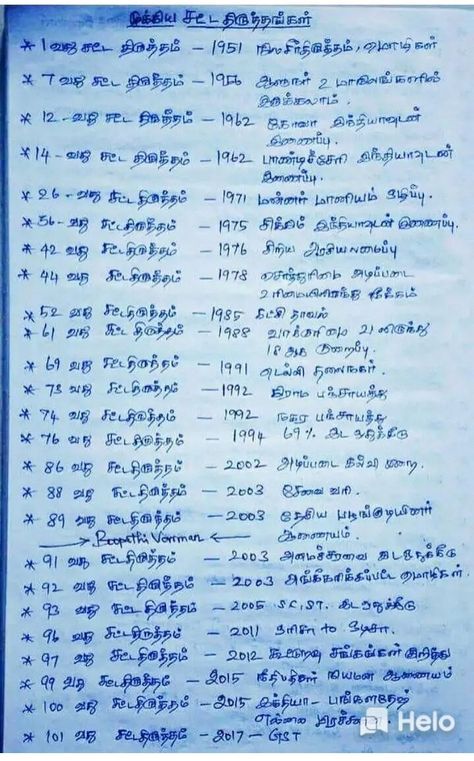 முக்கிய சட்ட திருத்தங்கள்
* 1 வது சட்ட திருத்தம் – 1951 நிலசீர்திருத்தம், மொழிகள்
* 7 வது சட்ட திருத்தம் – 1956 ஆளுநர் 2 மாநிலங்களில்
இருக்கலாம்.
* 12 – வது சட்ட திருத்தம் – 1962 கோவா இந்தியாவுடன்
இணைப்பு.
* 14 – வது சட்ட திருத்தம் – 1962 பாண்டிச்சேரி இந்தியாவுடன்
இணைப்பு.
* 26 – வது சட்டதிருத்தம் – 1971 மன்னர் மானியம் ஒழிப்பு.
* 36 – வது சட்டதிருத்தம் – 1975 சிக்கிம் இந்தியாவுடன் இணைப்பு.
* 42 வது சட்டதிருத்தம் – 1976 சிறிய அரசியலமைப்பு
* 44 வது சட்டதிருத்தம் – 1978 சொத்துரிமை அடிப்படை
உரிமையிலிருந்து நீக்கம்
* 52 வது சட்டதிருத்தம் – 1985 கட்சி தாவல்
* 61 வது சட்ட திருத்தம் – 1988 வாக்குரிமை 21 லிருந்து
18 ஆக குறைப்பு.
* 69 வது சட்டதிருத்தம் – 1991 டெல்லி தலைநகர்.
* 73 வது சட்டதிருத்தம் – 1992 கிராம பஞ்சாயத்து
* 74 வது சட்டதிருத்தம் – 1992 நகர பஞ்சாயத்து
* 76 வது சட்டதிருத்தம் – 1994 69% இடஒதுக்கீடு
* 86 வது சட்டதிருத்தம் – 2002 அடிப்படை கல்வி முறை.
* 88 வது சட்டதிருத்தம் – 2003 சேவை வரி.
* 89 வது சட்டதிருத்தம் – 2003 தேசிய பழங்குடியினர்
Boopathi Varman ஆணையம்.
* 91 வது சட்டதிருத்தம் – 2003 அமைச்சரவை இடஒதுக்கீடு
* 92 வது சட்டதிருத்தம் – 2003 அங்கீகரிக்கப்பட்ட மொழிகள்.
* 93 வது சட்டதிருத்தம் – 2005 SC, ST. இடஒதுக்கீடு
* 96 வது சட்டதிருத்தம் – 2011 ஒரிசா to ஒடிசா.
* 97 வது சட்டதிருத்தம் – 2012 கூட்டுறவு சங்கங்கள் குறித்து
* 99 வது சட்டதிருத்தம் – 2015 நீதிபதிகள் நியமன ஆணையம்
* 100 வது சட்டதிருத்தம் – 2015 இந்தியா – பங்களாதேஷ்
எல்லை பிரச்சனை.
* 101 வது சட்டதிருத்தம் – 2017 – GST
Helo